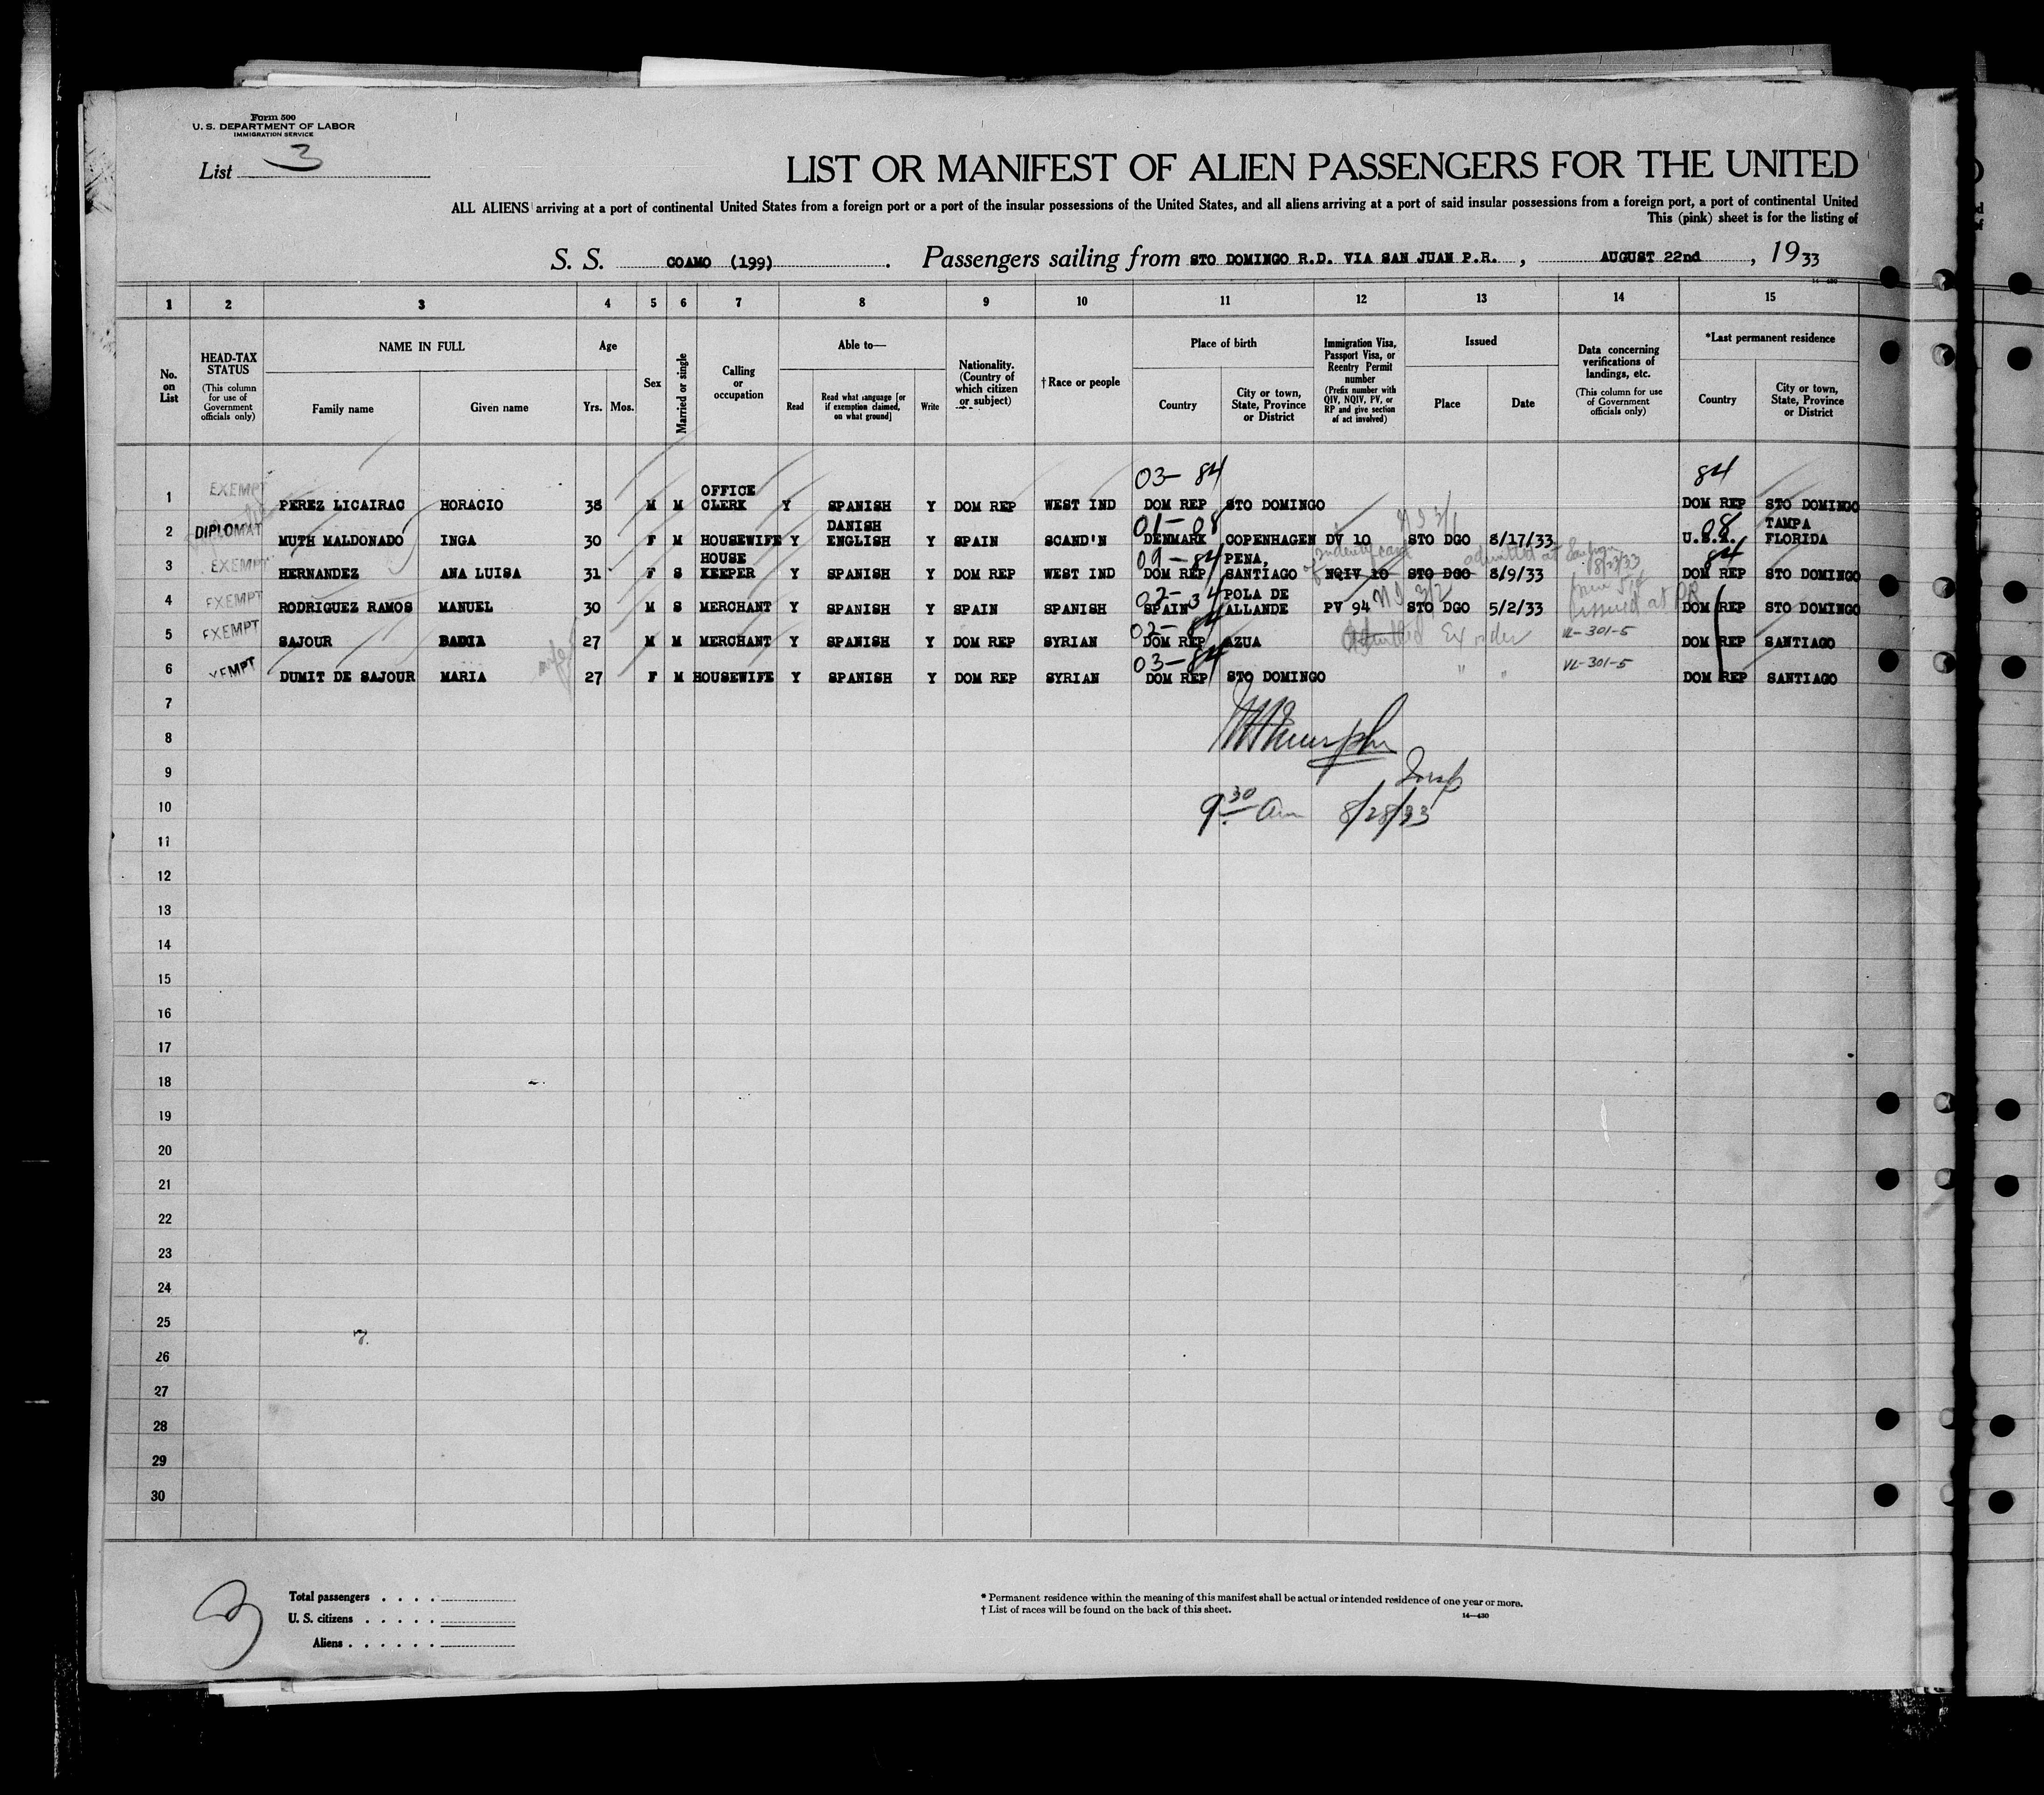 Form 500
U. S. DEPARTMENT OF LABOR
IMMIGRATION SERVICE
List 3
LIST OR MANIFEST OF ALIEN PASSENGERS FOR THE UNITED
ALL ALIENS arriving at a port of continental United States from a foreign port or a port of the insular possessions of the United States, and all aliens arriving at a port of said insular possessions from a foreign port, a port of continental United
This (pink) sheet is for the listing of
S. S. COAMO (199). Passengers sailing from STO DOMINGO R.D. VIA SAN JUAN P.R., AUGUST 22nd, 1933
14—430
1 2 3 4 5 6 7 8 9 10 11 12 13 14 15
No. on List
HEAD-TAX STATUS (This column for use of Government officials only)
NAME IN FULL
Family name Given name
Age
Yrs. Mos.
Sex
Married or single
Calling or occupation
Able to—
Read Read what language [or if exemption claimed, on what ground] Write
Nationality. (Country of which citizen or subject)
† Race or people
Place of birth
Country City or town, State, Province or District
Immigration Visa, Passport Visa, or Reentry Permit number (Prefix number with QIV, NQIV, PV, or RP and give section of act involved)
Issued
Place Date
Data concerning verifications of landings, etc. (This column for use of Government officials only)
*Last permanent residence
Country City or town, State, Province or District
03- 84 84
1 EXEMPT PEREZ LICAIRAC HORACIO 38 M M OFFICE CLERK Y SPANISH Y DOM REP WEST IND DOM REP STO DOMINGO DOM REP STO DOMINGO
01-08 NI 3/1 08
2 DIPLOMAT MUTH MALDONADO INGA 30 F M HOUSEWIFE Y DANISH ENGLISH Y SPAIN SCAND'N DENMARK COPENHAGEN DV 10 STO DGO 8/17/33 U.S.A. TAMPA FLORIDA
09-84 identity card admitted at San Juan 8/23/33 84
3 EXEMPT HERNANDEZ ANA LUISA 31 F S HOUSE KEEPER Y SPANISH Y DOM REP WEST IND DOM REP PENA, SANTIAGO NQIV 10 STO DGO 8/9/33 DOM REP STO DOMINGO
02-34 NI 3/2 issued at PR
4 EXEMPT RODRIGUEZ RAMOS MANUEL 30 M S MERCHANT Y SPANISH Y SPAIN SPANISH SPAIN POLA DE ALLANDE PV 94 STO DGO 5/2/33 DOM REP STO DOMINGO
02-84
5 EXEMPT SAJOUR BADIA 27 M M MERCHANT Y SPANISH Y DOM REP SYRIAN DOM REP AZUA Admitted Ex order VL-301-5 DOM REP SANTIAGO
03-84
6 EXEMPT DUMIT DE SAJOUR MARIA 27 F M HOUSEWIFE Y SPANISH Y DOM REP SYRIAN DOM REP STO DOMINGO " " VL-301-5 DOM REP SANTIAGO
7
8
9 Insp
10 9 30 am 8/28/33
11
12
13
14
15
16
17
18
19
20
21
22
23
24
25
26
27
28
29
30
3
Total passengers . . . .
U. S. citizens . . . . .
Aliens . . . . . .
* Permanent residence within the meaning of this manifest shall be actual or intended residence of one year or more.
† List of races will be found on the back of this sheet.
14—430